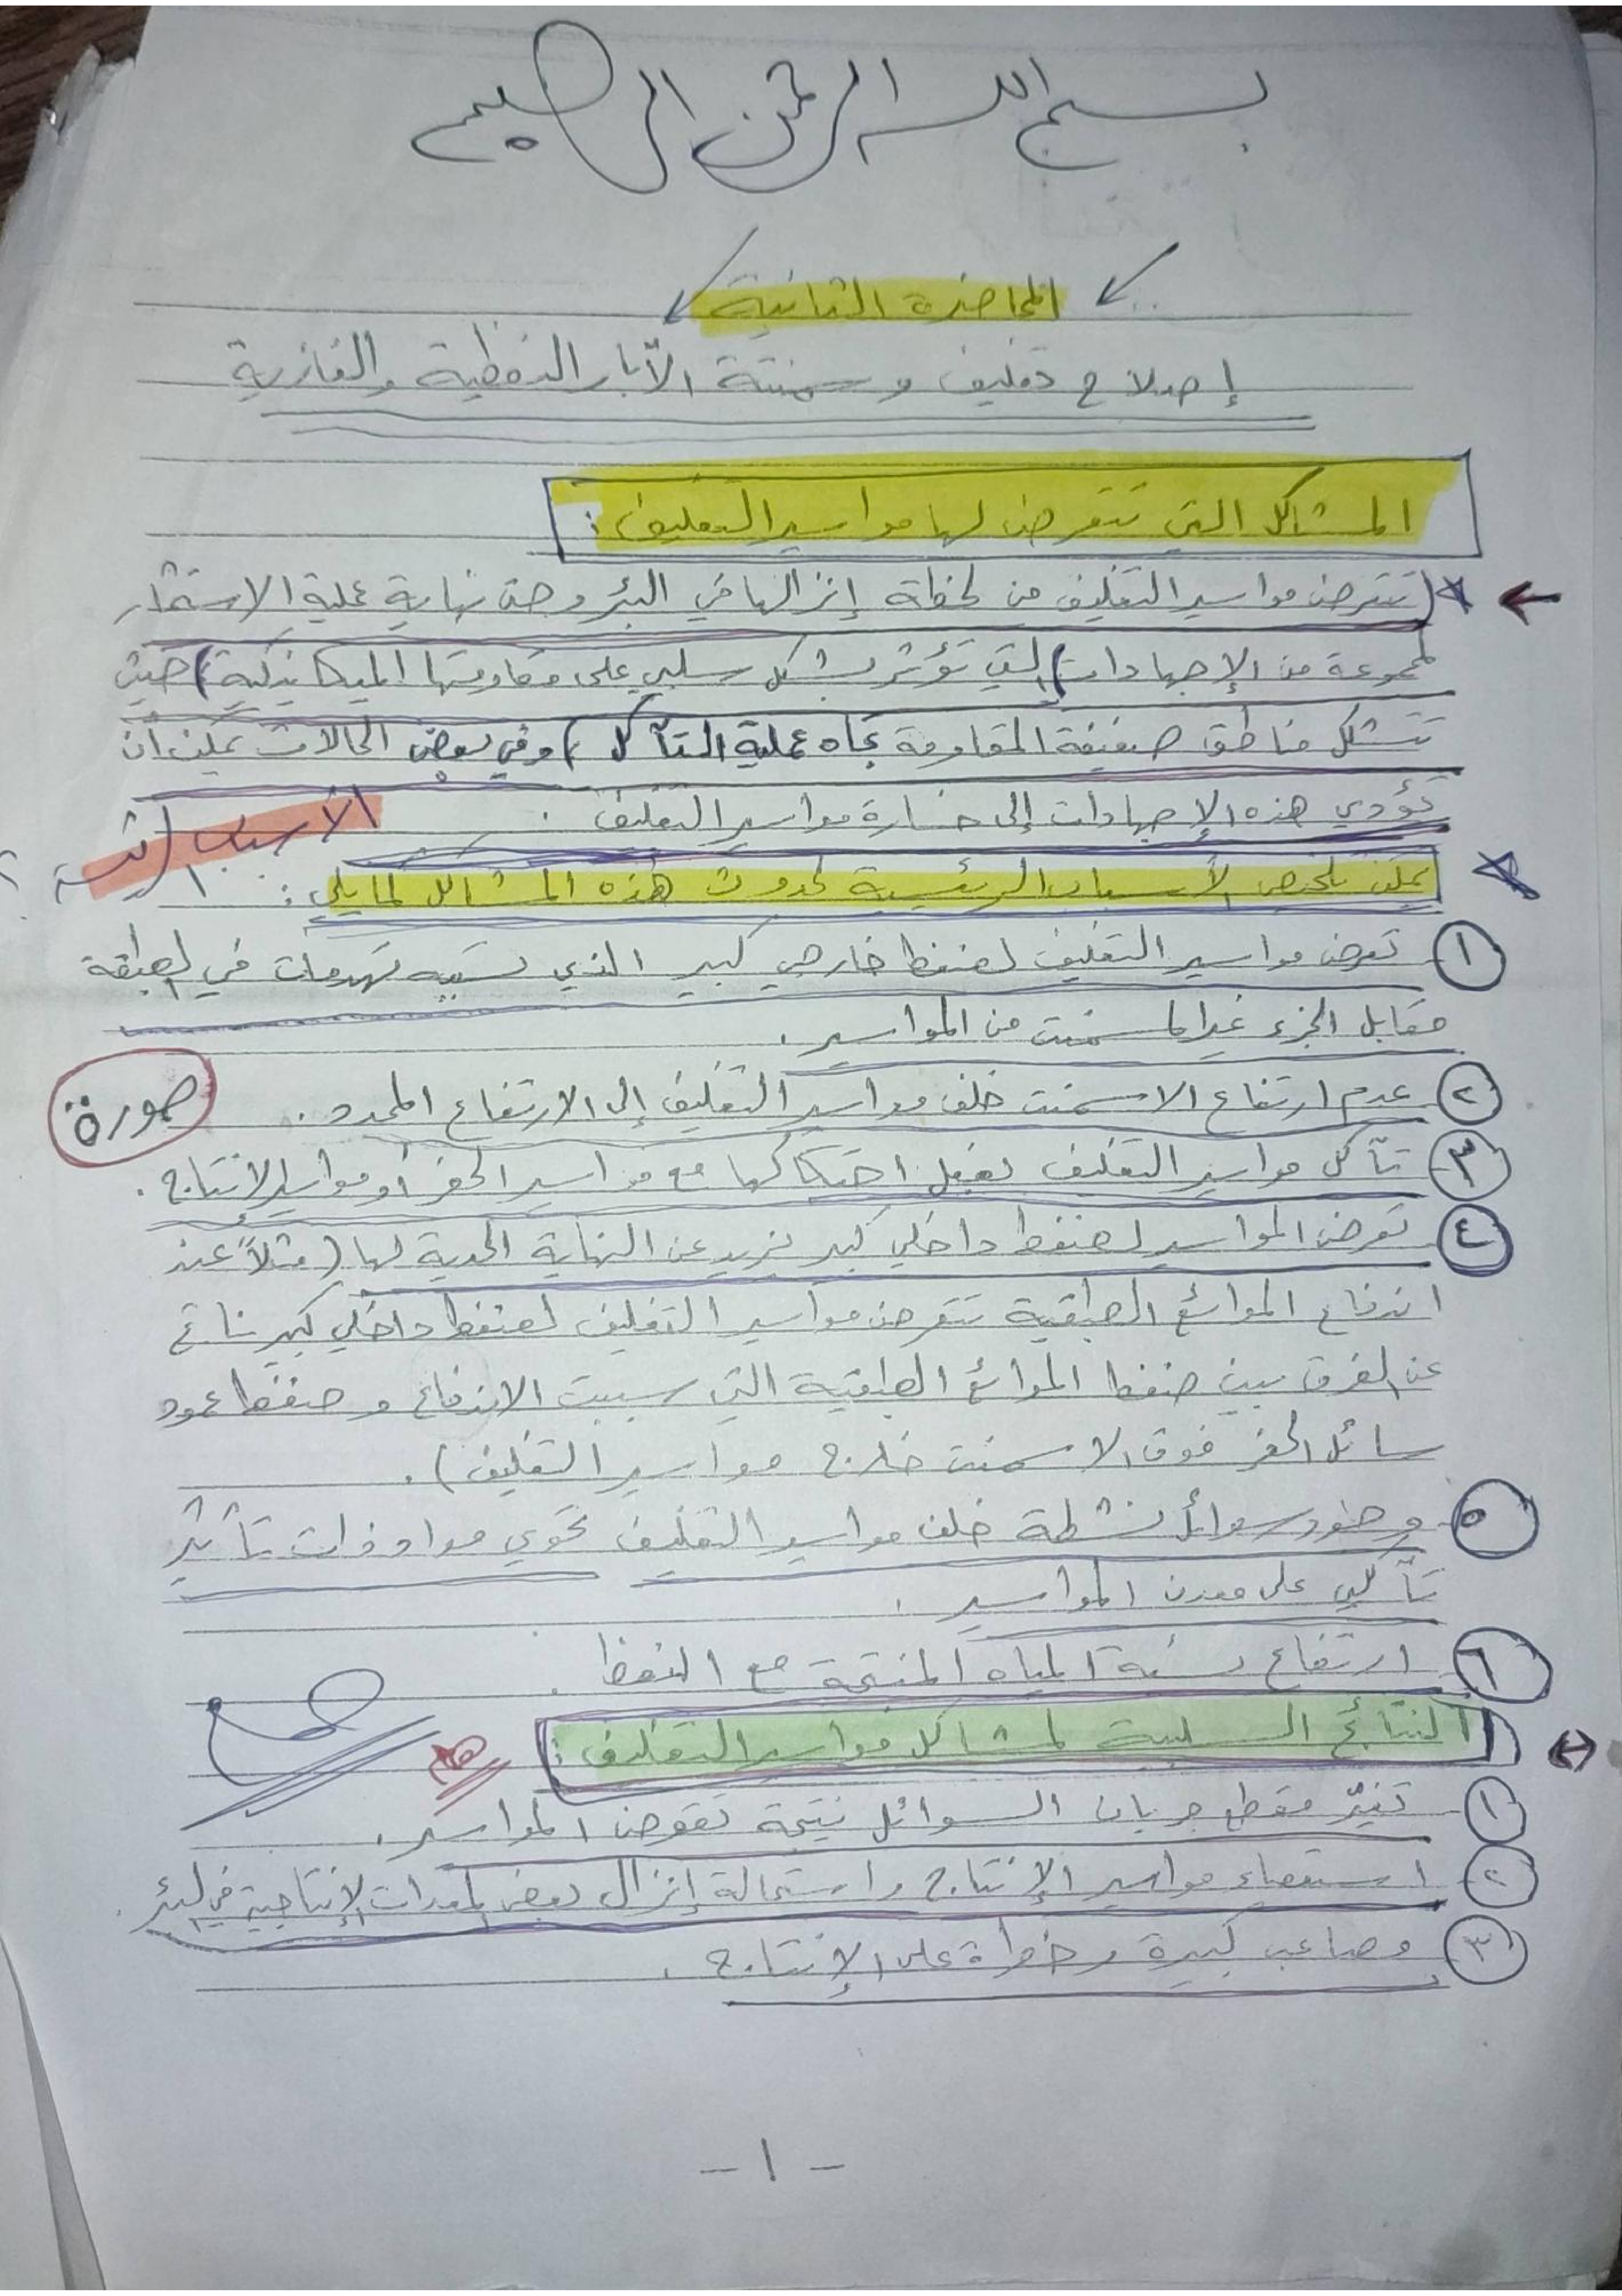 بسم الله الرحمن الرحيم
المحاضرة الثانية
إصلاح تغليف وسمنتة الآبار النفطية والغازية
المشاكل التي تتعرض لها مواسير التغليف :
(تتعرض مواسير التغليف من لحظة إنزالها في البئر وحتى نهاية عملية الاستثمار
لمجموعة من الإجهادات) (التي تؤثر بشكل سلبي على مقاومتها الميكانيكية) حيث
تتشكل مناطق ضعيفة المقاومة تجاه عملية التآكل) وفي بعض الحالات يمكن أن
تؤدي هذه الإجهادات إلى خسارة مواسير التغليف .
الأسباب الرئيسية
يمكن تلخيص الأسباب الرئيسية لحدوث هذه المشاكل لما يلي :
١ تعرض مواسير التغليف لضغط خارجي كبير الذي تسببه تهدمات في الطبقة
مقابل الجزء غير المسمنت من المواسير .
٢ عدم ارتفاع الاسمنت خلف مواسير التغليف إلى الارتفاع المحدد .
صورة
٣ تآكل مواسير التغليف بفعل احتكاكها مع مواسير الحفر أو مواسير الإنتاج .
٤ تعرض المواسير لضغط داخلي كبير يزيد عن النهاية الحدية لها (مثلاً عند
اندفاع الموائع الطبقية تتعرض مواسير التغليف لضغط داخلي كبير ناتج
عن الفرق بين ضغط الموائع الطبقية التي سببت الاندفاع وضغط عمود
سائل الحفر فوق الاسمنت خارج مواسير التغليف) .
٥ وجود سوائل نشطة خلف مواسير التغليف تحوي مواد ذات تأثير
تآكلي على معدن المواسير .
٦ ارتفاع نسبة المياه المنتجة مع النفط .
النتائج السلبية لمشاكل مواسير التغليف :
١ تغيّر مقطع جريان السوائل نتيجة تقوض المواسير .
٢ استعصاء مواسير الإنتاج واستحالة إنزال بعض المعدات الإنتاجية في البئر .
٣ مصاعب كبيرة وخطرة على الإنتاج .
- ١ -